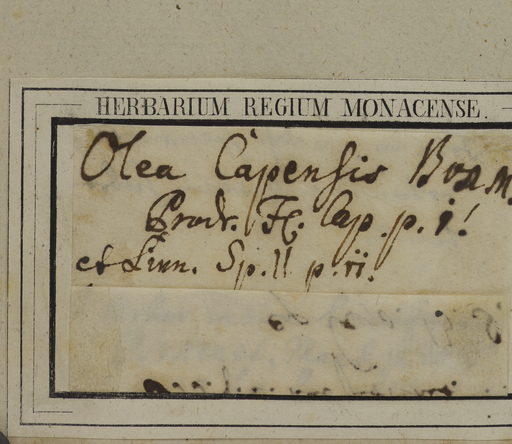 HERBARIUM REGIUM MONACENSE.
Olea Capensis Burm.
Prodr. Fl. Cap. p. i!
et Linn. Sp. ll p. ii.